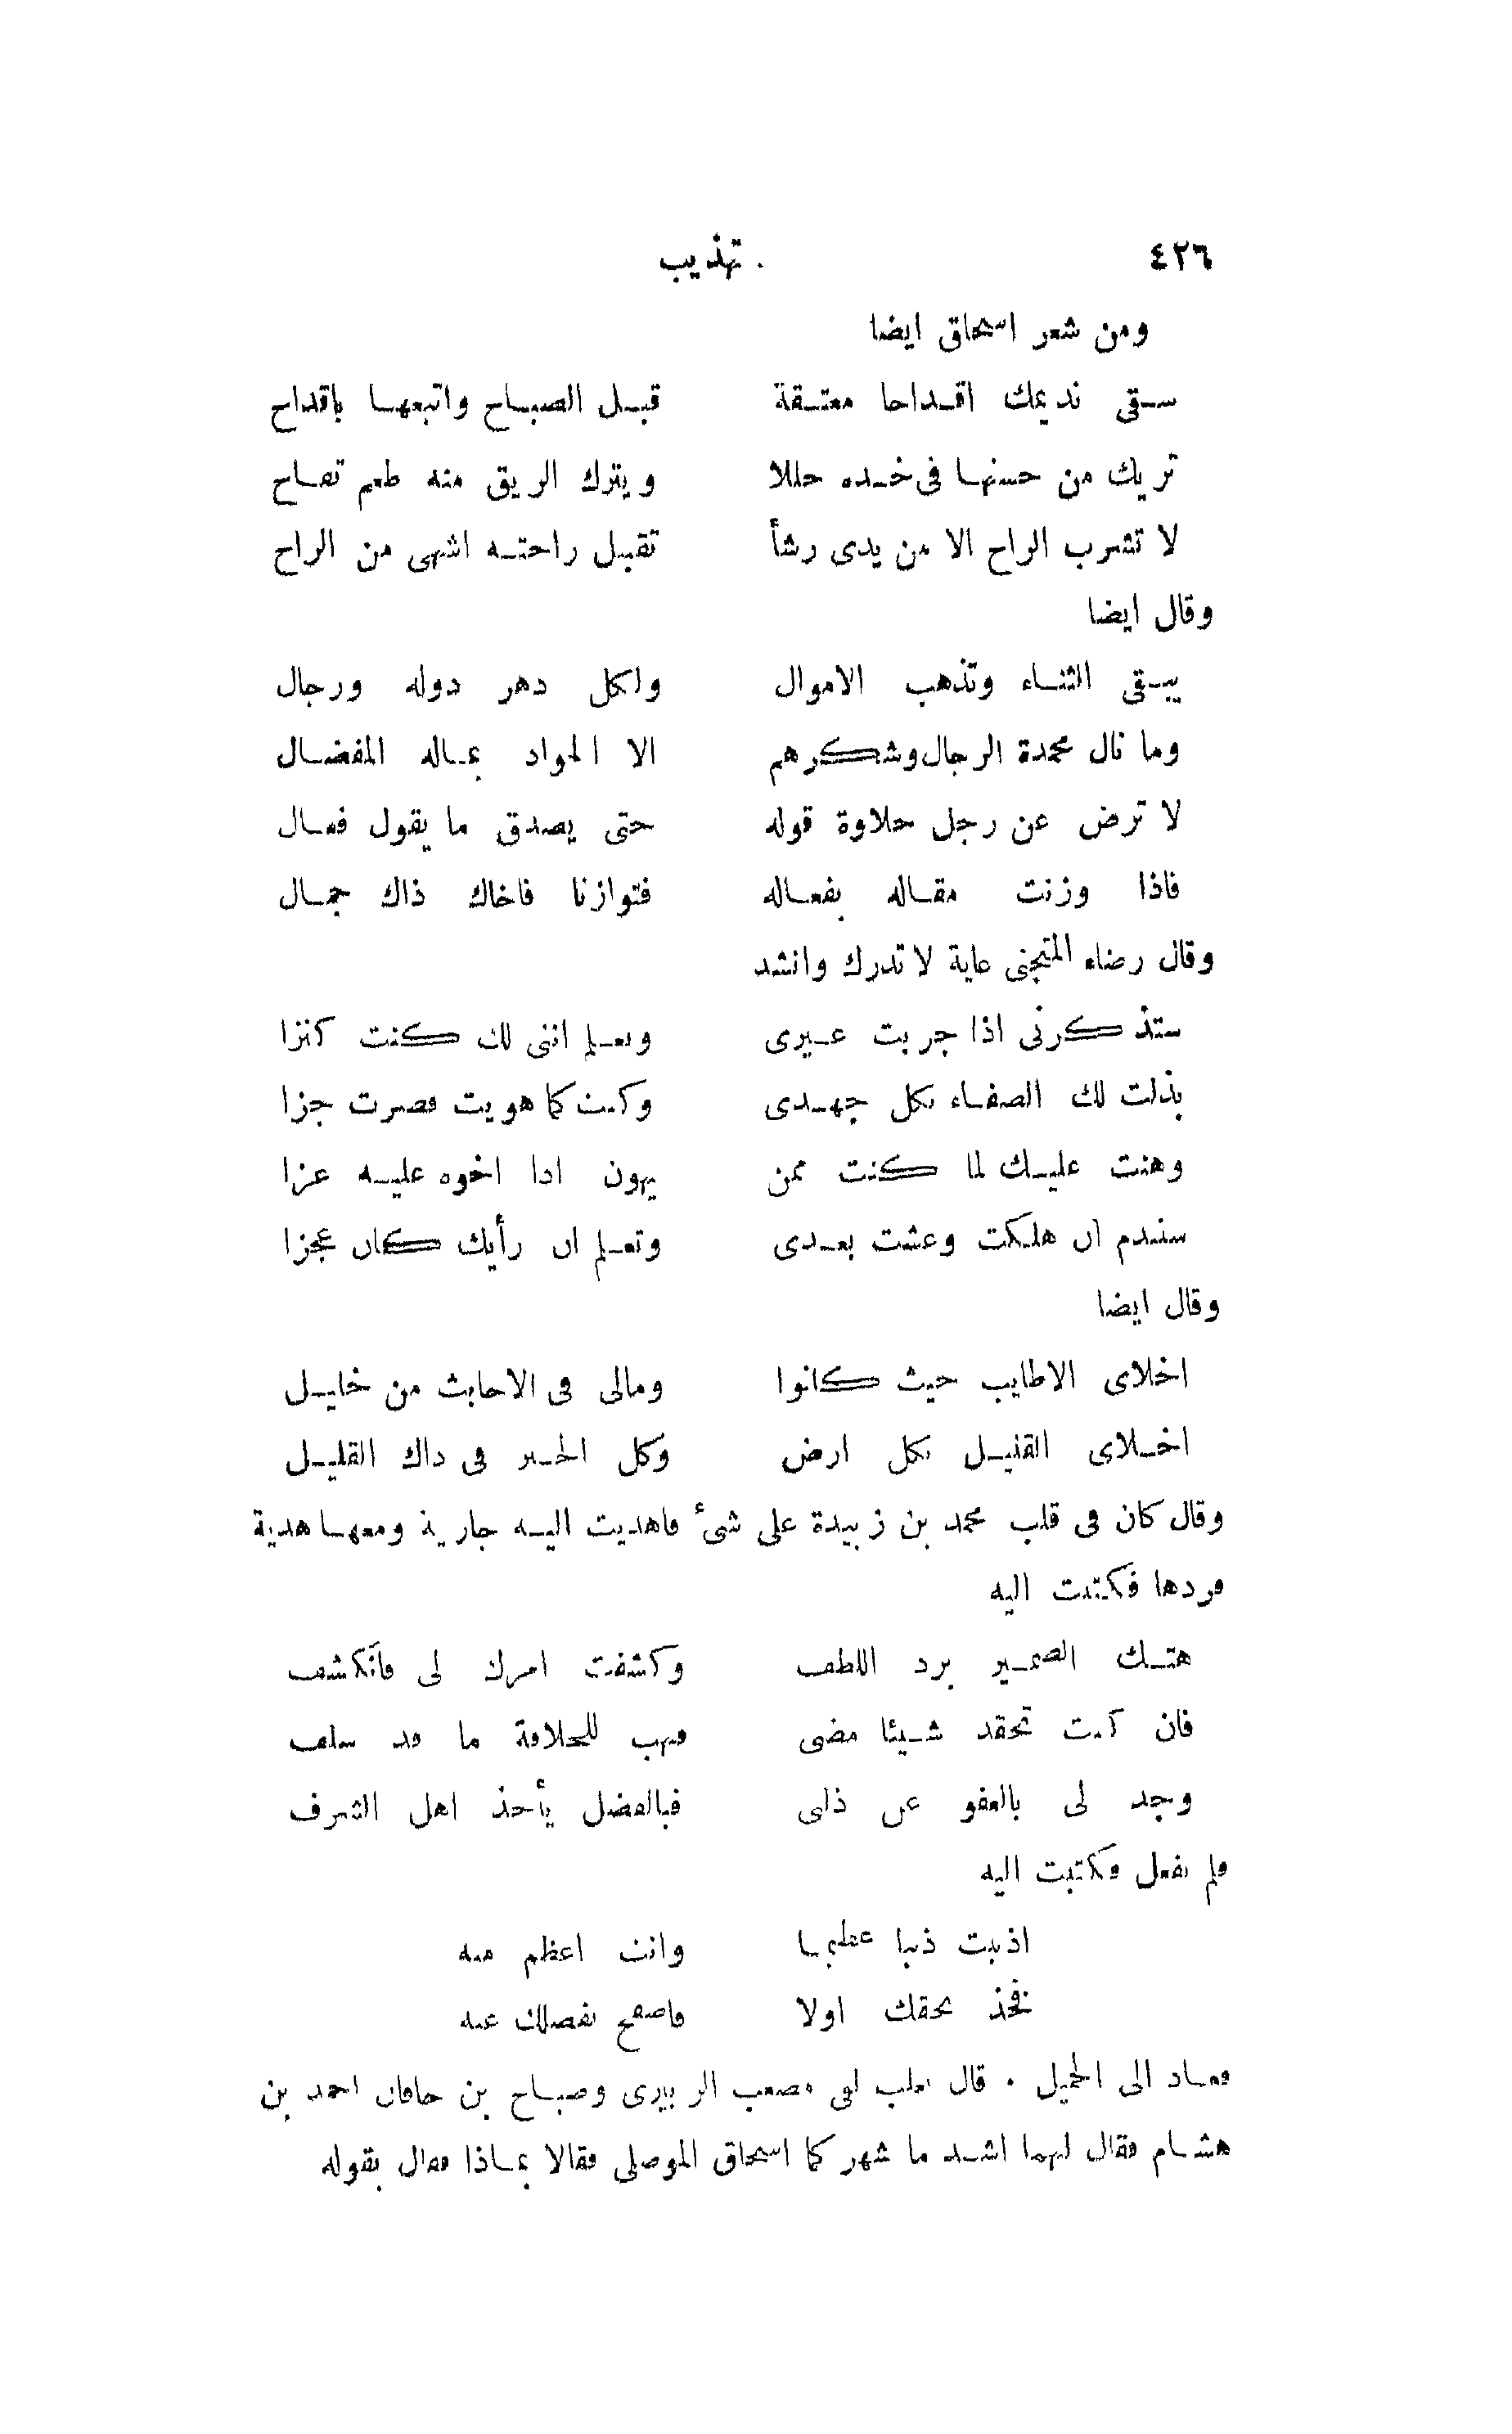 ٤٢٦ تهذيب
ومن شعر اسحاق ايضا
سقى نديمك اقداحا معتقة قبل الصباح واتبعها باقداح
تريك من حسنها فى خده حللا ويترك الريق منه طعم تفاح
لا تشرب الراح الا من يدى رشأ تقبيل راحته اشهى من الراح
وقال ايضا
يبقى الثناء وتذهب الاموال ولكل دهر دوله ورجال
وما نال محمدة الرجال وشكرهم الا الجواد بماله المفضال
لا ترض عن رجل حلاوة قوله حتى يصدق ما يقول فعال
فاذا وزنت مقاله بفعاله فتوازنا فاخاك ذاك جمال
وقال رضاء المتجنى غاية لا تدرك وانشد
ستذكرنى اذا جربت غيرى وتعلم اننى لك كنت كنزا
بذلت لك الصفاء بكل جهدى وكنت كما هويت فصرت جزا
وهنت عليك لما كنت ممن يهون اذا اخوه عليه عزا
ستندم ان هلكت وعشت بعدى وتعلم ان رأيك كان عجزا
وقال ايضا
اخلاى الاطايب حيث كانوا ومالى فى الاخابث من خليل
اخلاى القليل بكل ارض وكل الخير فى ذاك القليل
وقال كان فى قلب محمد بن زبيدة على شئ فاهديت اليه جارية ومعها هدية
فردها فكتبت اليه
هتك الضمير برد اللطف وكشفت امرك لى فانكشف
فان كنت تحقد شيئا مضى فهب للخلافة ما قد سلف
وجد لى بالعفو عن ذلى فبالفضل يأخذ اهل الشرف
فلم يفعل فكتبت اليه
اذنبت ذنبا عظيما وانت اعظم منه
فخذ بحقك اولا فاصفح بفضلك عنه
فعاد الى الجميل . قال ثعلب لقى مصعب الزبيرى وصباح بن خاقان احمد بن
هشام فقال لهما اشد ما شهركما اسحاق الموصلى فقالا بماذا فقال بقوله